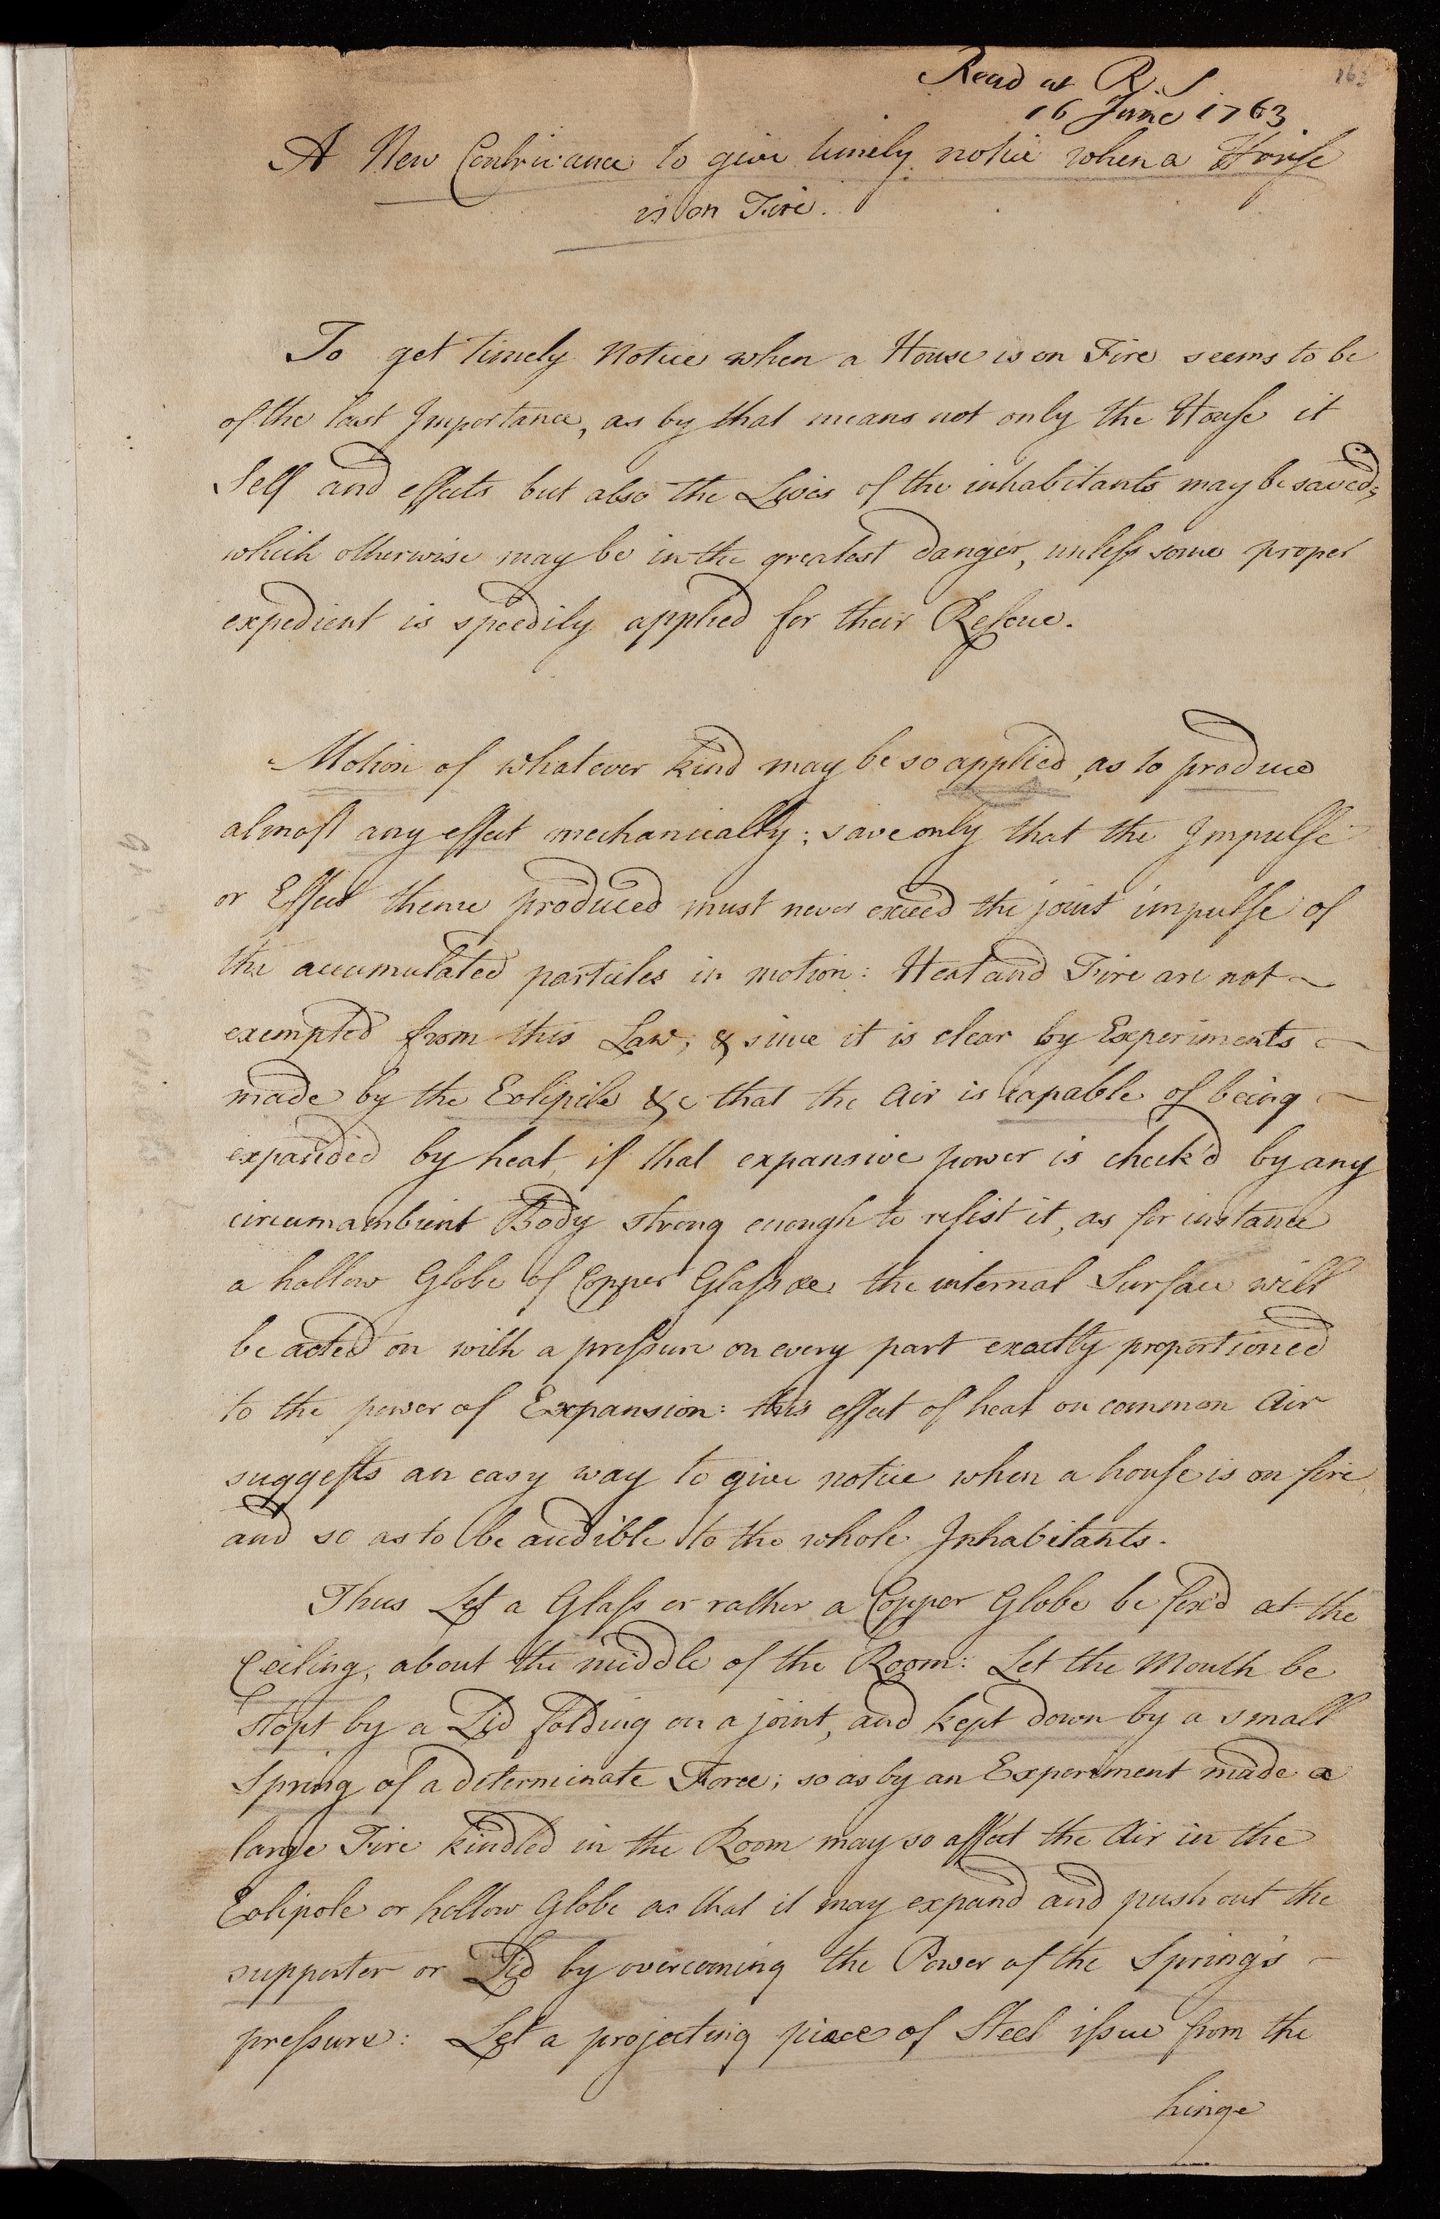 Read at R. S
16 June 1763
A New Contrivance to give timely notice when a House
is on Fire.
To get timely Notice when a House is on Fire seems to be
of the last Importance, as by that means not only the House it
Self and effects but also the Lives of the inhabitants may be saved;
which otherwise may be in the greatest danger, unless some proper
expedient is speedily applied for their Rescue.
Motion of whatever kind may be so applied, as to produce
almost any effect mechanically; save only that the Impulse
or Effect thence produced must never exceed the joint impulse of
the accumulated particles in motion: Heat and Fire are not
exempted from this Law; & since it is clear by Experiments
made by the Eolipile &c that the Air is capable of being
expanded by heat, if that expansive power is check'd by any
circumambient Body strong enough to resist it, as for instance
a hollow Globe of Copper Glass &c, the internal Surface will
be acted on with a pressure on every part exactly proportioned
to the power of Expansion: this effect of heat on common Air
suggests an easy way to give notice when a house is on fire,
and so as to be audible to the whole Inhabitants.
Thus Let a Glass or rather a Copper Globe be fix'd at the
Ceiling, about the middle of the Room: Let the Mouth be
stopt by a Lid folding on a joint, and kept down by a small
Spring of a determinate Force; so as by an Experiment made a
large Fire kindled in the Room may so affect the Air in the
Eolipole or hollow Globe as that it may expand and push out the
supporter or Lid by overcoming the Power of the Spring's
pressure: Let a projecting piece of Steel issue from the
hinge